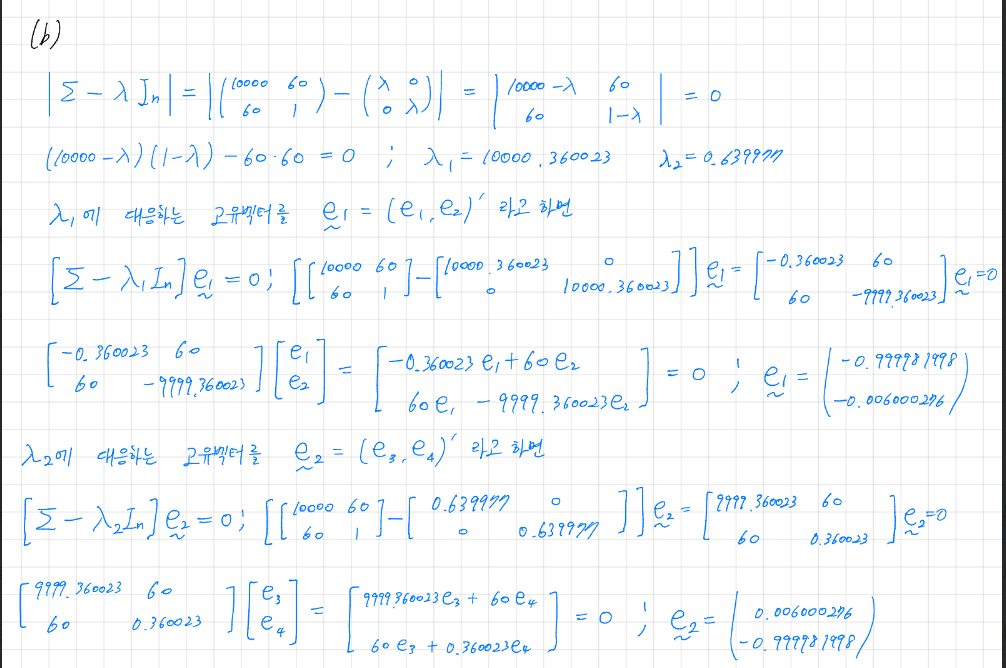 (b)
|Σ - λ Iₙ| = |(10000 60 / 60 1) - (λ 0 / 0 λ)| = |10000-λ 60 / 60 1-λ| = 0
(10000-λ)(1-λ) - 60·60 = 0 ; λ₁ = 10000.360023 λ₂ = 0.639977
λ₁에 대응하는 고유벡터를 e₁ = (e₁, e₂)′ 라고 하면
[Σ - λ₁Iₙ]e₁ = 0 ; [[10000 60 / 60 1] - [10000.360023 0 / 0 10000.360023]] e₁ = [-0.360023 60 / 60 -9999.360023] e₁ = 0
[-0.360023 60 / 60 -9999.360023] [e₁ / e₂] = [-0.360023e₁ + 60e₂ / 60e₁ - 9999.360023e₂] = 0 ; e₁ = (-0.999981998 / -0.006000276)
λ₂에 대응하는 고유벡터를 e₂ = (e₃, e₄)′ 라고 하면
[Σ - λ₂Iₙ]e₂ = 0 ; [[10000 60 / 60 1] - [0.639977 0 / 0 0.639977]] e₂ = [9999.360023 60 / 60 0.360023] e₂ = 0
[9999.360023 60 / 60 0.360023] [e₃ / e₄] = [9999.360023e₃ + 60e₄ / 60e₃ + 0.360023e₄] = 0 ; e₂ = (0.006000276 / -0.999981998)